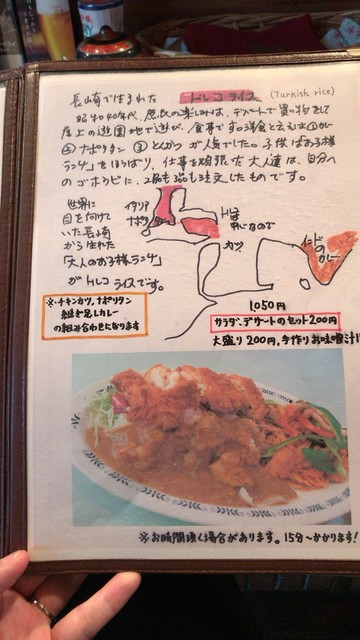 長崎で生まれた トルコライス (Turkish rice)
昭和40年代、庶民の楽しみは、デパートで買い物をして
屋上の遊園地で遊び、食事です。洋食と云えば①カレー
②ナポリタン ③とんかつ が人気でした。子供はお子様
ランチをほうばり、仕事を頑張った大人達は、自分へ
のゴホウビに、2品も3品も注文したものです。
世界に
目を向けて
いた長崎
から生れた
「大人のお子様ランチ」
が トルコライスです。
イタリア
ナポリタン
トルコ
中心なので
カツ
インド
の
カレー
※チキンカツ、ナポリタン
継ぎ足しカレー
の組み合わせとなります
1050円
サラダ、デザートのセット200円
大盛り200円、手作りお味噌汁
※お時間頂く場合があります。15分〜かかります!